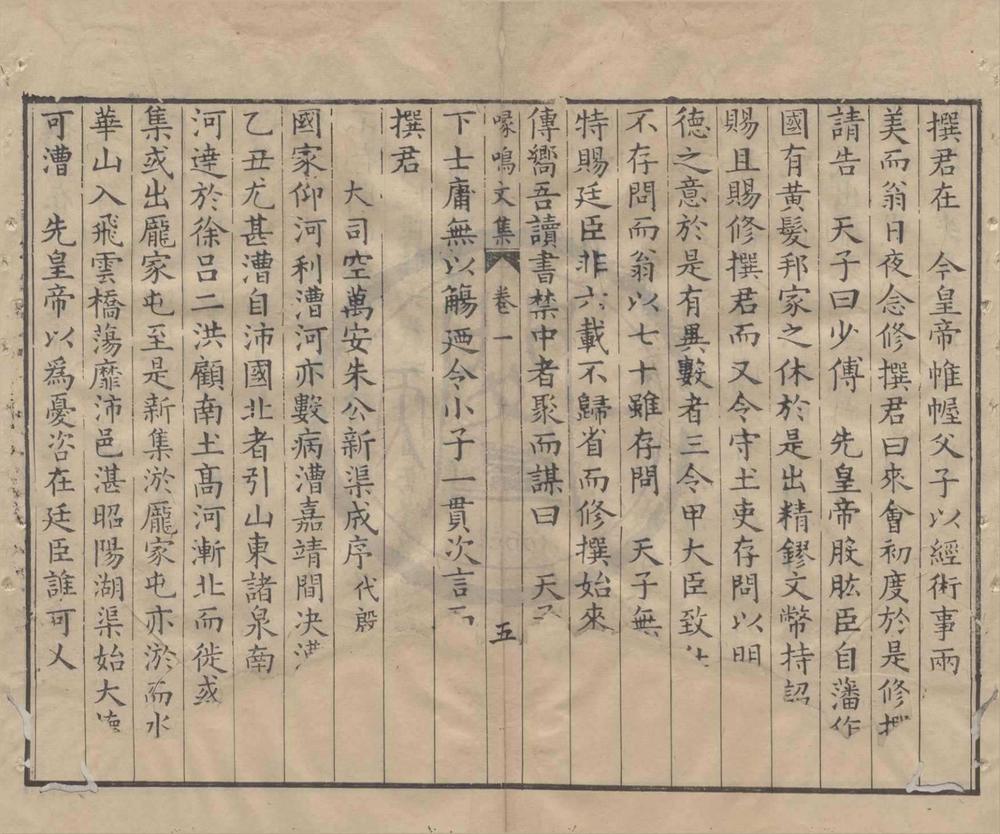 撰君在　今皇帝帷幄父子以經術事兩
美而翁日夜念修撰君曰來會初度於是修撰
請告　天子曰少傅　先皇帝股肱臣自藩作
國有黃髮邦家之休於是出精鏐文幣持詔
賜且賜修撰君而又令守土吏存問以明
德之意於是有異數者三令甲大臣致仕
不存問而翁以七十雖存問　天子無
特賜廷臣非六載不歸省而修撰始來
傳嚮吾讀書禁中者聚而謀曰　天子
喙鳴文集　卷一　五
下士庸無以觴廼令小子一貫次言
撰君
大司空萬安朱公新渠成序代殷
國家仰河利漕河亦數病漕嘉靖間决
乙丑尤甚漕自沛國北者引山東諸泉南
河達於徐呂二洪顧南土高河漸北而徙或
集或出龐家屯至是新集淤龐家屯亦淤而水
華山入飛雲橋蕩靡沛邑湛昭陽湖渠始大壞
可漕　先皇帝以爲憂咨在廷臣誰可乂